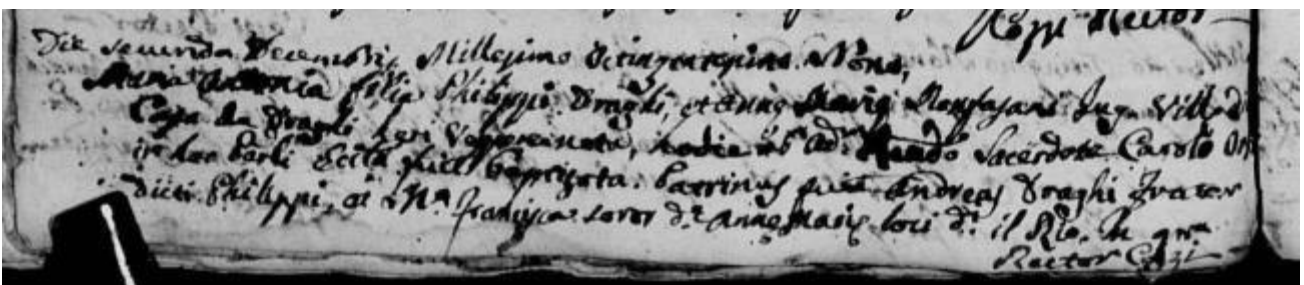 Rector
Die secunda Decembris Millesimo Octingentesimo Nono,
Maria Antonia filia Philippi Draghi, et Annæ Mariæ Jug.
Casa da Draghi heri Vespere nata, hodie ab ad. Sacerdote Carolo
in hac Ecclã fuit baptizata. Patrinus fuit Andreas Draghi Frater
Dicti Philippi, et Mª. Francisca soror dæ. Annæ Mariæ loci dt. il Rio. In
Rector